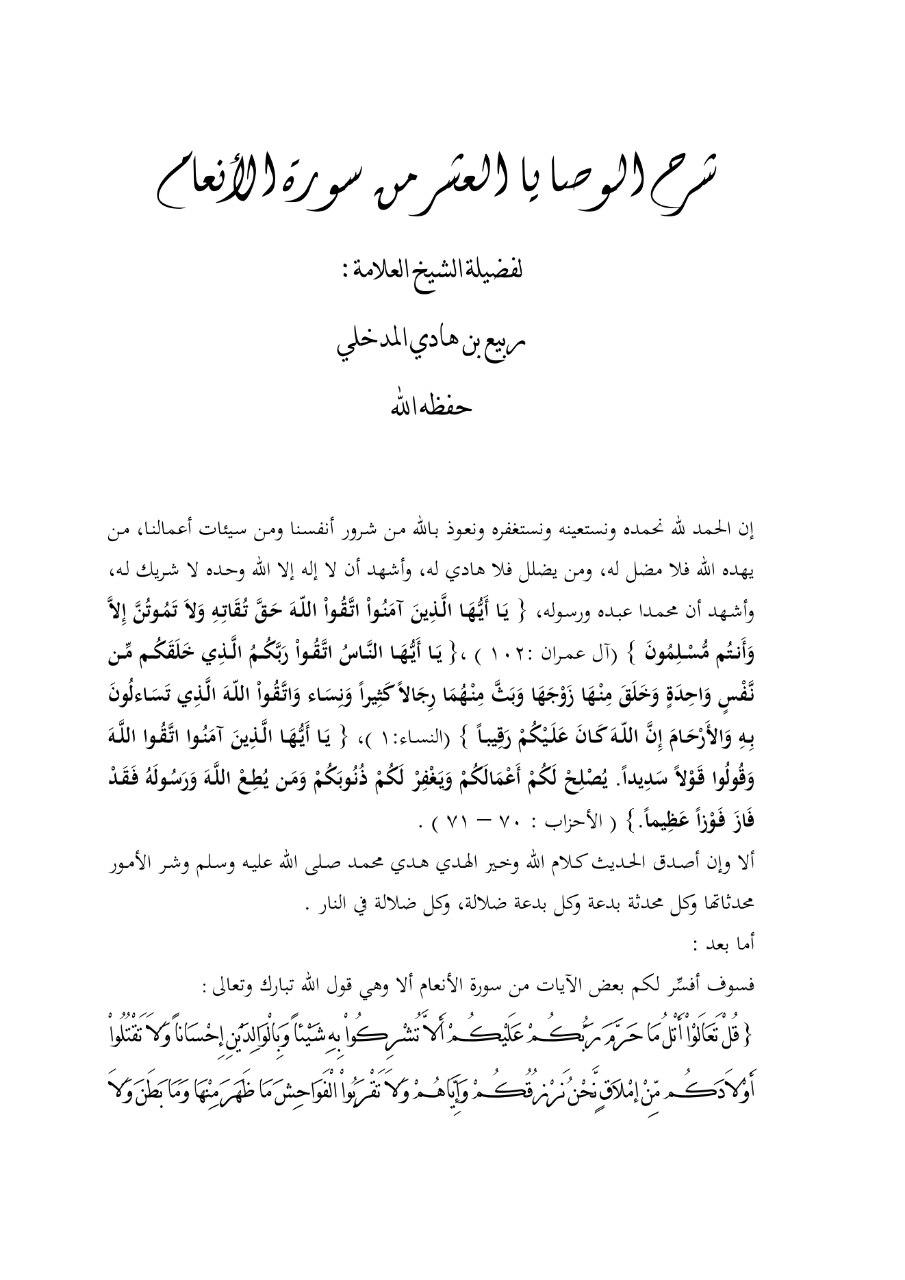 شرح الوصايا العشر من سورة الأنعام
لفضيلة الشيخ العلامة :
ربيع بن هادي المدخلي
حفظه الله
إن الحمد لله نحمده ونستعينه ونستغفره ونعوذ بالله من شرور أنفسنا ومن سيئات أعمالنا، من
يهده الله فلا مضل له، ومن يضلل فلا هادي له، وأشهد أن لا إله إلا الله وحده لا شريك له،
وأشهد أن محمدا عبده ورسوله، { يَا أَيُّهَا الَّذِينَ آمَنُواْ اتَّقُواْ اللّهَ حَقَّ تُقَاتِهِ وَلاَ تَمُوتُنَّ إِلاَّ
وَأَنتُم مُّسْلِمُونَ } (آل عمران :١٠٢ ) ،{ يَا أَيُّهَا النَّاسُ اتَّقُواْ رَبَّكُمُ الَّذِي خَلَقَكُم مِّن
نَّفْسٍ وَاحِدَةٍ وَخَلَقَ مِنْهَا زَوْجَهَا وَبَثَّ مِنْهُمَا رِجَالاً كَثِيراً وَنِسَاء وَاتَّقُواْ اللّهَ الَّذِي تَسَاءلُونَ
بِهِ وَالأَرْحَامَ إِنَّ اللّهَ كَانَ عَلَيْكُمْ رَقِيباً } (النساء:١ )، { يَا أَيُّهَا الَّذِينَ آمَنُوا اتَّقُوا اللَّهَ
وَقُولُوا قَوْلاً سَدِيداً. يُصْلِحْ لَكُمْ أَعْمَالَكُمْ وَيَغْفِرْ لَكُمْ ذُنُوبَكُمْ وَمَن يُطِعْ اللَّهَ وَرَسُولَهُ فَقَدْ
فَازَ فَوْزاً عَظِيماً.} ( الأحزاب : ٧٠ – ٧١ ) .
ألا وإن أصدق الحديث كلام الله وخير الهدي هدي محمد صلى الله عليه وسلم وشر الأمور
محدثاتها وكل محدثة بدعة وكل بدعة ضلالة، وكل ضلالة في النار .
أما بعد :
فسوف أفسِّر لكم بعض الآيات من سورة الأنعام ألا وهي قول الله تبارك وتعالى :
{ قُلْ تَعَالَوْاْ أَتْلُ مَا حَرَّمَ رَبُّكُمْ عَلَيْكُمْ أَلاَّ تُشْرِكُواْ بِهِ شَيْئاً وَبِالْوَالِدَيْنِ إِحْسَاناً وَلاَ تَقْتُلُواْ
أَوْلاَدَكُم مِّنْ إمْلاَقٍ نَّحْنُ نَرْزُقُكُمْ وَإِيَّاهُمْ وَلاَ تَقْرَبُواْ الْفَوَاحِشَ مَا ظَهَرَ مِنْهَا وَمَا بَطَنَ وَلاَ